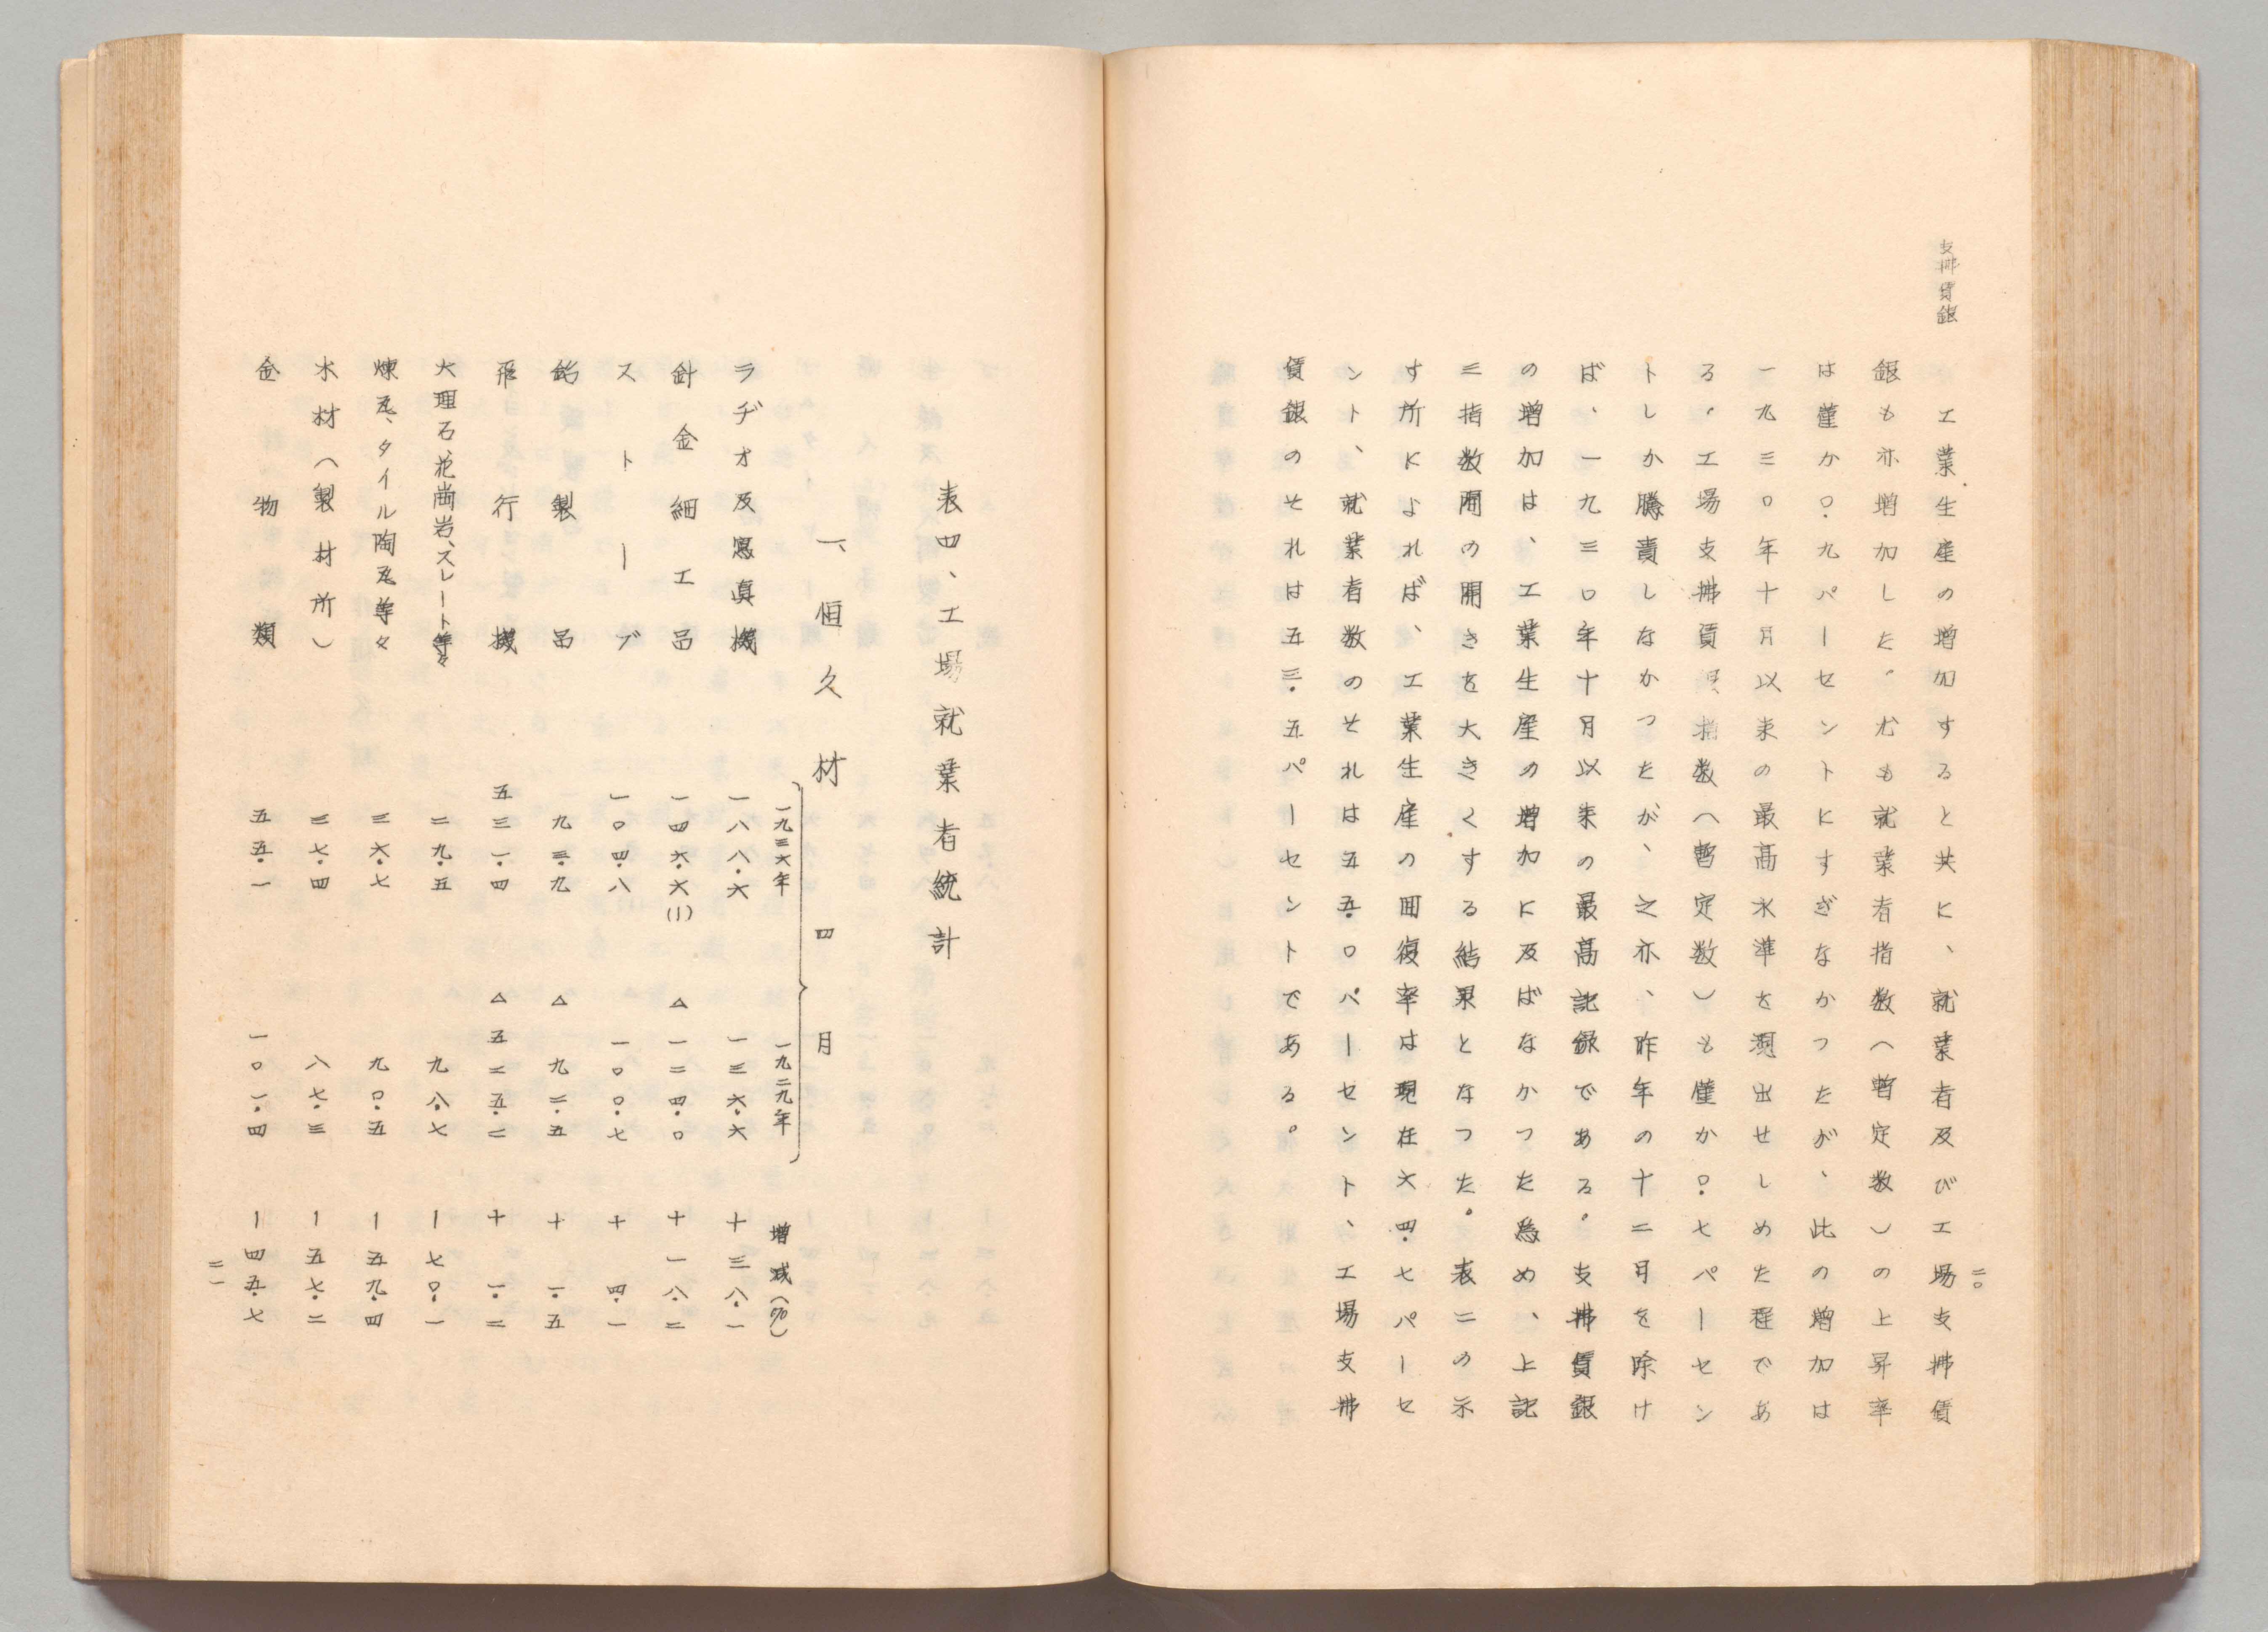 支拂賃銀
二〇
工業生産の増加すると共に、就業者及び工場支拂賃
銀も亦増加した。尤も就業者指数(暫定数)の上昇率
は僅か〇・九パーセントにすぎなかつたが、此の増加は
一九三〇年十月以来の最高水準を現出せしめた程であ
る。工場支拂賃銀指数(暫定数)も僅か〇・七パーセン
トしか騰貴しなかつたが、之亦、昨年の十二月を除け
ば、一九三〇年十月以来の最高記録である。支拂賃銀
の増加は、工業生産の増加に及ばなかつた為め、上記
三指数間の開きを大きくする結果となつた。表二の示
す所によれば、工業生産の回復率は現在六四・七パーセ
ント、就業者数のそれは五五・〇パーセント、工場支拂
賃銀のそれは五三・五パーセントである。
表四、工場就業者統計
一、恒久材 四月
一九三六年 一九二九年 増減(%)
ラヂオ及寫真機 一八八・六 一三六・六 十三八・一
針金細工呂 一四六・六(1) △一二四・〇 十一八・二
ストーブ 一〇四・八 一〇〇・七 十四・一
鉛製呂 九三・九 △九二・五 十一・五
飛行機 五三一・四 △五二五・二 十一・二
大理石、花崗岩、スレート等々 二九・五 九八・七 ー七〇・一
煉瓦、タイル陶瓦等々 三六・七 九〇・五 ー五九・四
木材(製材所) 三七・四 八七・三 ー五七・二
金物類 五五・一 一〇一・四 ー四五・七
二一